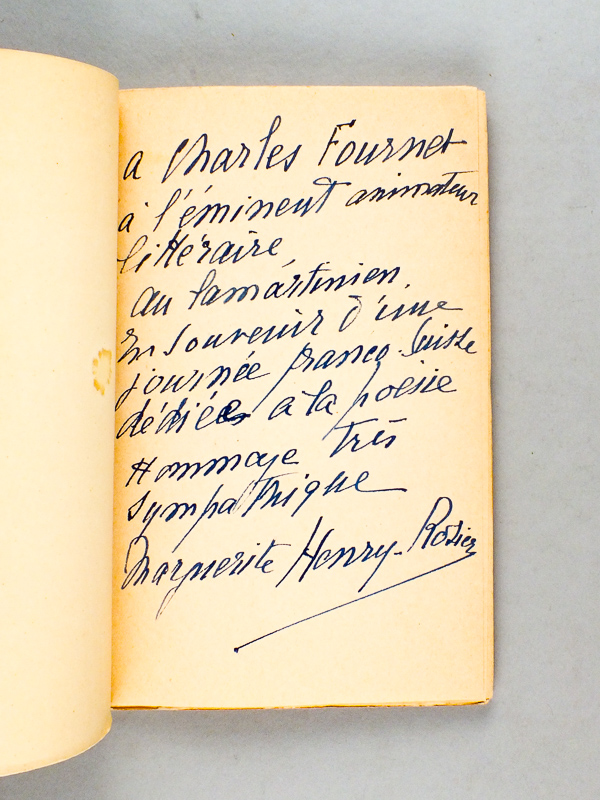 à Charles Fournet
à l'éminent animateur
littéraire,
au lamartinien,
en souvenir d'une
journée franco-suisse
dédiée à la poésie
Hommage très
sympathique
Marguerite Henry-Rosier